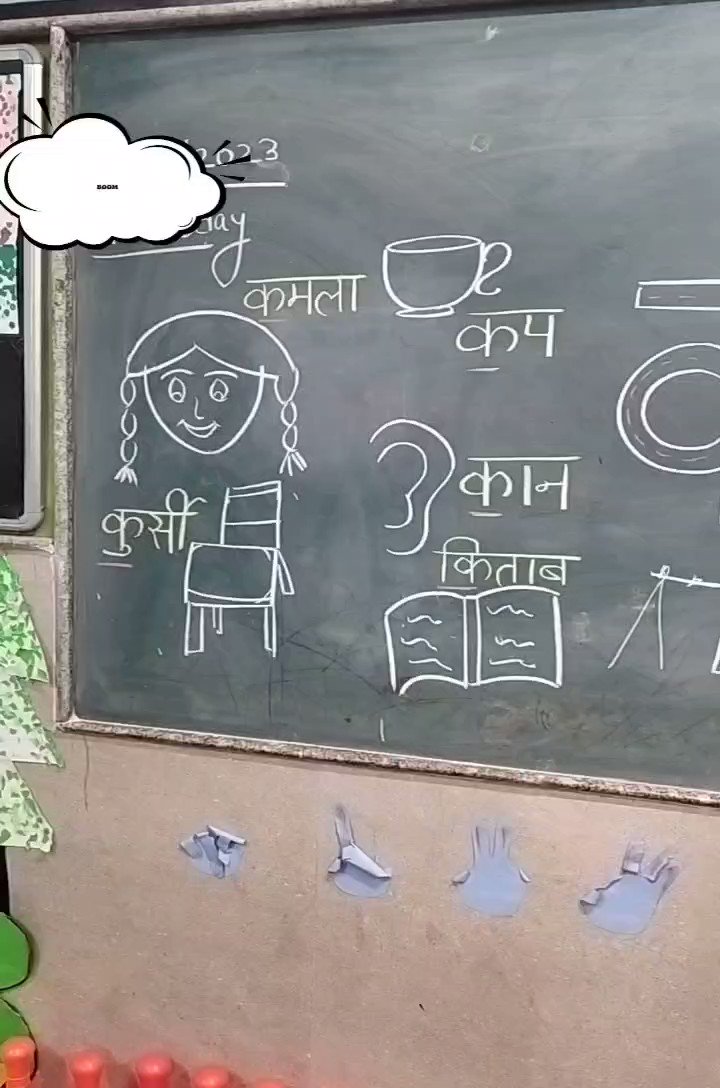 BOOM
2023
day
कमला
कप
कुर्सी
कान
किताब